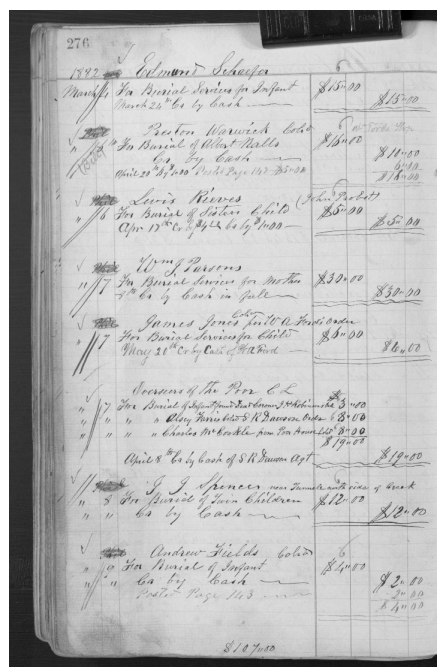 276
1892 Edmund Schaefer
March 4 For Burial Services for Infant $15.00
March 24th Cr by Cash $15.00
Preston Warwick Cold
For Burial of Albert Nalls $16.00
Cr by Cash $10.00
April 20th by 1.00 Posted Page 142 $5.00 6.00
$16.00
Lewis Rieves (John Parbot)
" 6 For Burial of Sisters Child $5.00
Apr 17th Cr by $4.00 Cr by 1.00 $5.00
Wm J. Parsons
" 7 For Burial Services for Mother $30.00
8th Cr by Cash in full $30.00
James Jones Cold per W A Fords order
" 7 For Burial Services for Child $6.00
May 20th Cr by Cash of W A Ford $6.00
Overseers of the Poor C. L.
" 7 For Burial of Infant found Dead Coroner J. H. Robinson $3.00
" " " " Ferris Cold S R Dawson Order 8.00
" " " " Charles from Poor House Cold 8.00
$19.00
April 8th Cr by Cash of S R Dawson Agt $19.00
J J Spencer near Tunnel side of Creek
" 8 For Burial of Twin Children $12.00
" " Cr by Cash $12.00
Andrew Fields Cold
" 9 For Burial of Infant $4.00
" " Cr by Cash $2.00
Posted Page 143 2.00
$4.00
$107.00